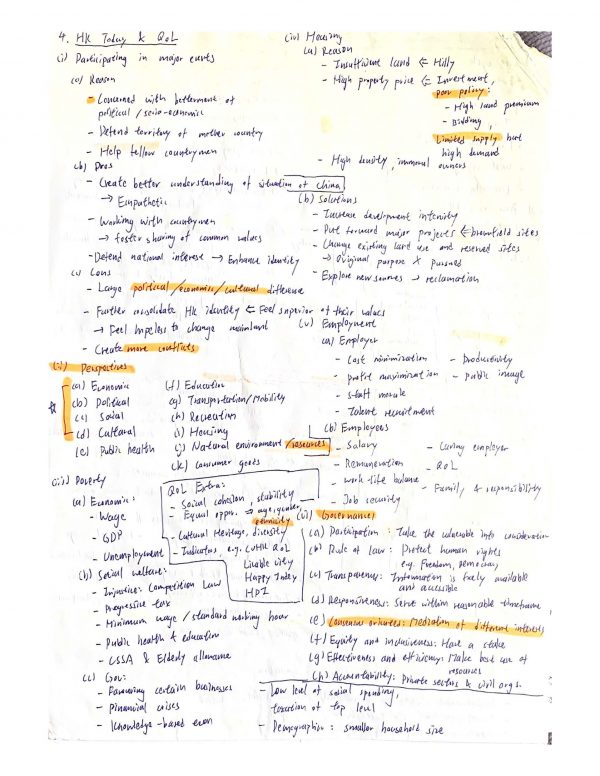 4. HK Today & QoL
(i) Participating in major events
(a) Reason
- Concerned with betterment of
political / socio-economic
- Defend territory of mother country
- Help fellow countrymen
(b) Pros
- Create better understanding of situation of China
→ Empathetic
- Working with countrymen
→ foster sharing of common values
- Defend national interest → Enhance identity
(c) Cons
- Large political / economic / cultural difference
- Further consolidate HK identity ⇐ Feel superior of their values
→ Feel hopeless to change mainland
- Create more conflicts
(ii) Perspectives
☆
(a) Economic
(b) Political
(c) Social
(d) Cultural
(e) Public health
(f) Education
(g) Transportation / Mobility
(h) Recreation
(i) Housing
(j) Natural environment / resources
(k) Consumer goods
(iii) Poverty
(a) Economic:
- Wage
- GDP
- Unemployment
(b) Social welfare:
- Injustice: Competition Law
- Progressive tax
- Minimum wage / standard working hour
- Public health & education
- CSSA & Elderly allowance
(c) Gov:
- Favouring certain businesses
- Financial crises
- Knowledge-based econ
- Low level of social spending,
taxation of top level
- Demographic: smaller household size
QoL Extra:
- Social cohesion, stability
- Equal oppn. → age, gender,
ethnicity
- Cultural Heritage, diversity
- Indicators, e.g. CUHK QoL
Livable city
Happy Index
HDI
(iv) Housing
(a) Reason
- Insufficient land ⇐ Hilly
- High property price ⇐ Investment,
Poor policy:
- High land premium
- Bidding,
Limited supply but
high demand
- High density, immoral owners
(b) Solutions
- Increase development intensity
- Put forward major projects ⇐ brownfield sites
- Change existing land use and reserved sites
→ Original purpose X pursued
- Explore new sources → reclamation
(v) Employment
(a) Employer
- Cost minimization
- profit maximization
- Staff morale
- Talent recruitment
- Productivity
- Public image
(b) Employees
- Salary
- Remuneration
- work-life balance
- Job security
- Caring employer
- QoL
- Family, & responsibility
(vi) Governance
(a) Participation: Take the vulnerable into consideration
(b) Rule of law: Protect human rights
e.g. Freedom, Democracy
(c) Transparency: Information is freely available
and accessible
(d) Responsiveness: Serve within reasonable timeframe
(e) Consensus oriented: Mediation of different interests
(f) Equity and inclusiveness: Have a stake
(g) Effectiveness and efficiency: Make best use of
resources
(h) Accountability: Private sectors & civil orgs.